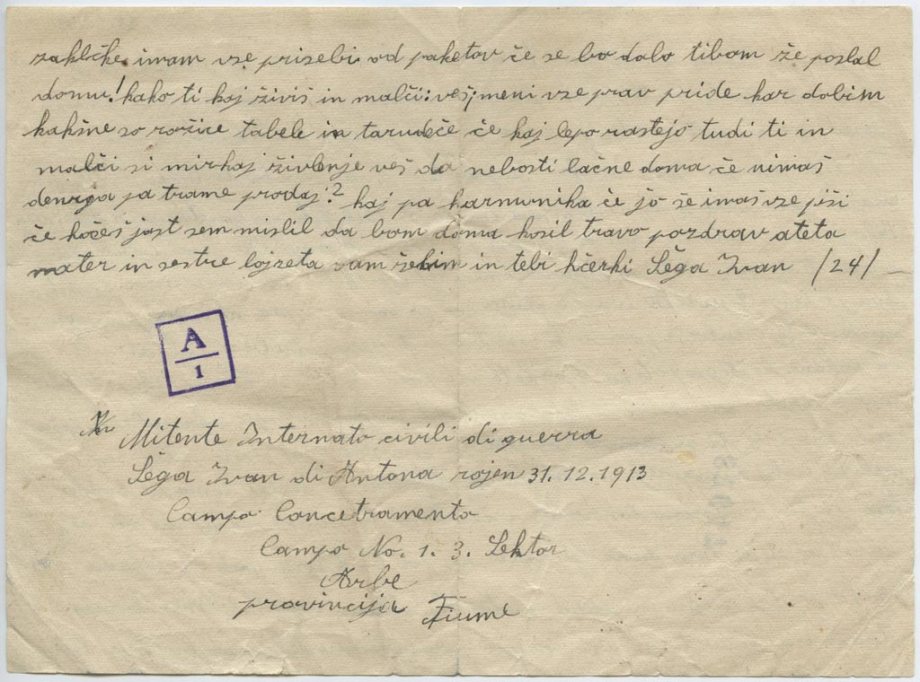 zakléke imam vse prisebi od paketov če se bo dalo tibom že poslal
domu! kako ti kaj živiš in malči: veš; meni vse prav pride kar dobim
kakšne so rožice tabele in tarudeče če kaj lepo rastejo tudi ti in
malči si mirhaj življenje veš da nebosti lačne doma če nimaš
denrga pa trame prodaj? kaj pa harmunika če jo še imaš vze piši
če hočeš jast sem mislil da bom doma kosil travo pozdrav ateta
mater in sestre lojzeta vam želim in tebi hčerki Šega Ivan /24/
A
1
Mitente Internato civili di guerra
Šega Ivan di Antona rojen 31.12.1913
Campo Concetramento
Campo No. 1. 3. Sektor
Arbe
provincija Fiume